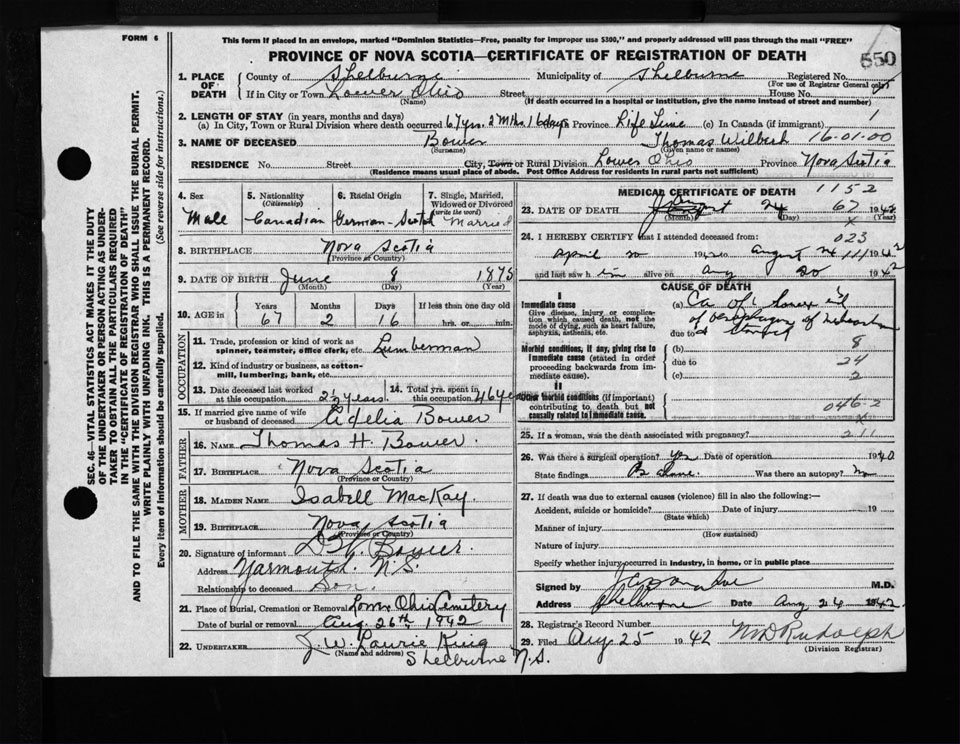 FORM 6
This form if placed in an envelope, marked "Dominion Statistics—Free, penalty for improper use $300," and properly addressed will pass through the mail "FREE"
PROVINCE OF NOVA SCOTIA—CERTIFICATE OF REGISTRATION OF DEATH
550
1. PLACE OF DEATH
County of Shelburne Municipality of Shelburne Registered No.
(For use of Registrar General only)
If in City or Town Lower Ohio Street House No.
(Name) (If death occurred in a hospital or institution, give the name instead of street and number)
2. LENGTH OF STAY (in years, months and days) 1
(a) In City, Town or Rural Division where death occurred 67 yrs. 2 Mths. 16 days Province Life Time (c) In Canada (if immigrant)
3. NAME OF DECEASED Bower Thomas Wilbert 16-01.00
(Surname) (Given name or names)
RESIDENCE No. Street City, Town or Rural Division Lower Ohio Province Nova Scotia
(Residence means usual place of abode. Post Office Address for residents in rural parts not sufficient)
4. Sex Male
5. Nationality (Citizenship) Canadian
6. Racial Origin German-Scotch
7. Single, Married, Widowed or Divorced (write the word) Married
8. BIRTHPLACE Nova Scotia
(Province or Country)
9. DATE OF BIRTH June 8 1875
(Month) (Day) (Year)
10. AGE Years 67 Months 2 Days 16 If less than one day old hrs. or min.
OCCUPATION
11. Trade, profession or kind of work as spinner, teamster, office clerk, etc. Lumberman
12. Kind of industry or business, as cotton-mill, lumbering, bank, etc.
13. Date deceased last worked at this occupation 2½ years
14. Total yrs. spent in this occupation 46 years
15. If married give name of wife or husband of deceased Adelia Bower
FATHER
16. NAME Thomas H. Bower.
17. BIRTHPLACE Nova Scotia
(Province or Country)
MOTHER
18. MAIDEN NAME Isabell MacKay.
19. BIRTHPLACE Nova Scotia
(Province or Country)
20. Signature of informant Bower.
Address Yarmouth. N.S.
Relationship to deceased Son.
21. Place of Burial, Cremation or Removal Lower Ohio Cemetery
Date of burial or removal Aug. 26th, 1942
22. UNDERTAKER J. W. Laurie King
(Name and address) Shelburne N.S.
MEDICAL CERTIFICATE OF DEATH 1152
23. DATE OF DEATH August 24 67 1942
(Month) (Day)
24. I HEREBY CERTIFY that I attended deceased from: 023
April 20 1942 to August 24 1942
and last saw him alive on Aug 20 1942
CAUSE OF DEATH
I
Immediate cause
Give disease, injury or complication which caused death, not the mode of dying, such as heart failure, asphyxia, asthenia, etc.
(a) Ca of
of oesophagus
due to
Morbid conditions, if any, giving rise to immediate cause (stated in order proceeding backwards from immediate cause).
(b) 8
due to 24
(c) 2
II
Other morbid conditions (if important) contributing to death but not causally related to immediate cause.
046-2
25. If a woman, was the death associated with pregnancy? 211
26. Was there a surgical operation? Yes Date of operation 1940
State findings Was there an autopsy? No
27. If death was due to external causes (violence) fill in also the following:—
Accident, suicide or homicide? Date of injury 19
(State which)
Manner of injury
(How sustained)
Nature of injury
Specify whether injury occurred in industry, in home, or in public place
Signed by M.D.
Address Shelburne Date Aug 24 1942.
28. Registrar's Record Number
29. Filed Aug 25 1942 Rudolph
(Division Registrar)
SEC. 46—VITAL STATISTICS ACT MAKES IT THE DUTY
OF THE UNDERTAKER OR PERSON ACTING AS UNDER-
TAKER TO OBTAIN ALL THE PARTICULARS REQUIRED
IN THE "CERTIFICATE OF REGISTRATION OF DEATH"
AND TO FILE THE SAME WITH THE DIVISION REGISTRAR WHO SHALL ISSUE THE BURIAL PERMIT.
WRITE PLAINLY WITH UNFADING INK. THIS IS A PERMANENT RECORD.
Every item of information should be carefully supplied. (See reverse side for instructions.)